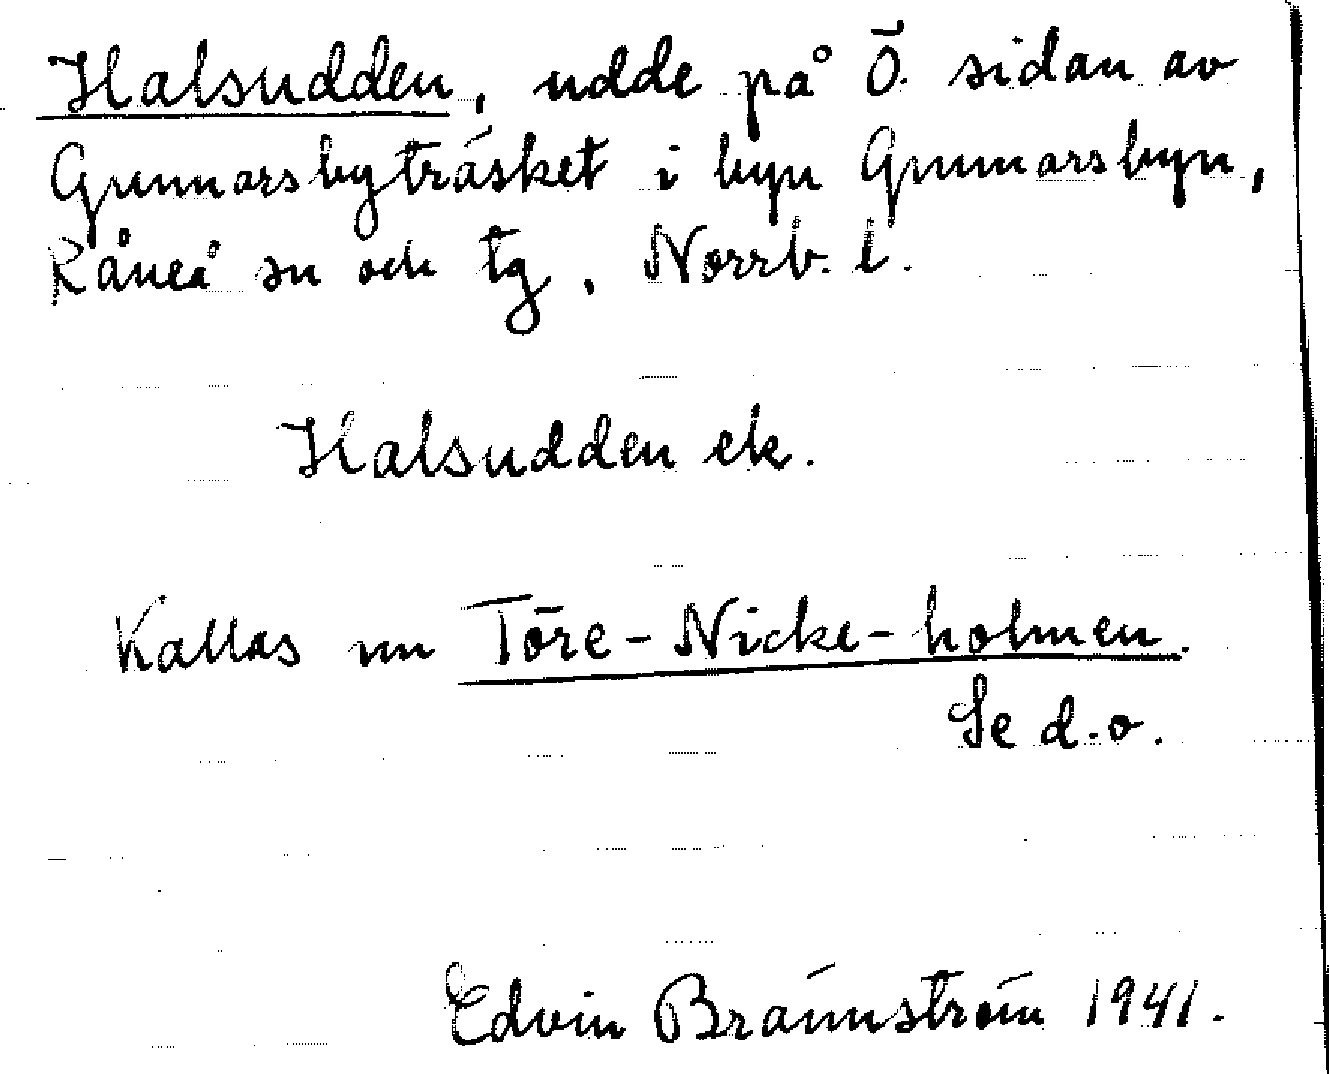 Halsudden, udde på Ö. sidan av
Gunnarsbyträsket i byn Gunnarsbyn,
Råneå sn och tg, Norrb. l.
Halsudden ek.
Kallas nu Töre-Nicke-holmen.
Se d.o.
Edvin Brännström 1941.